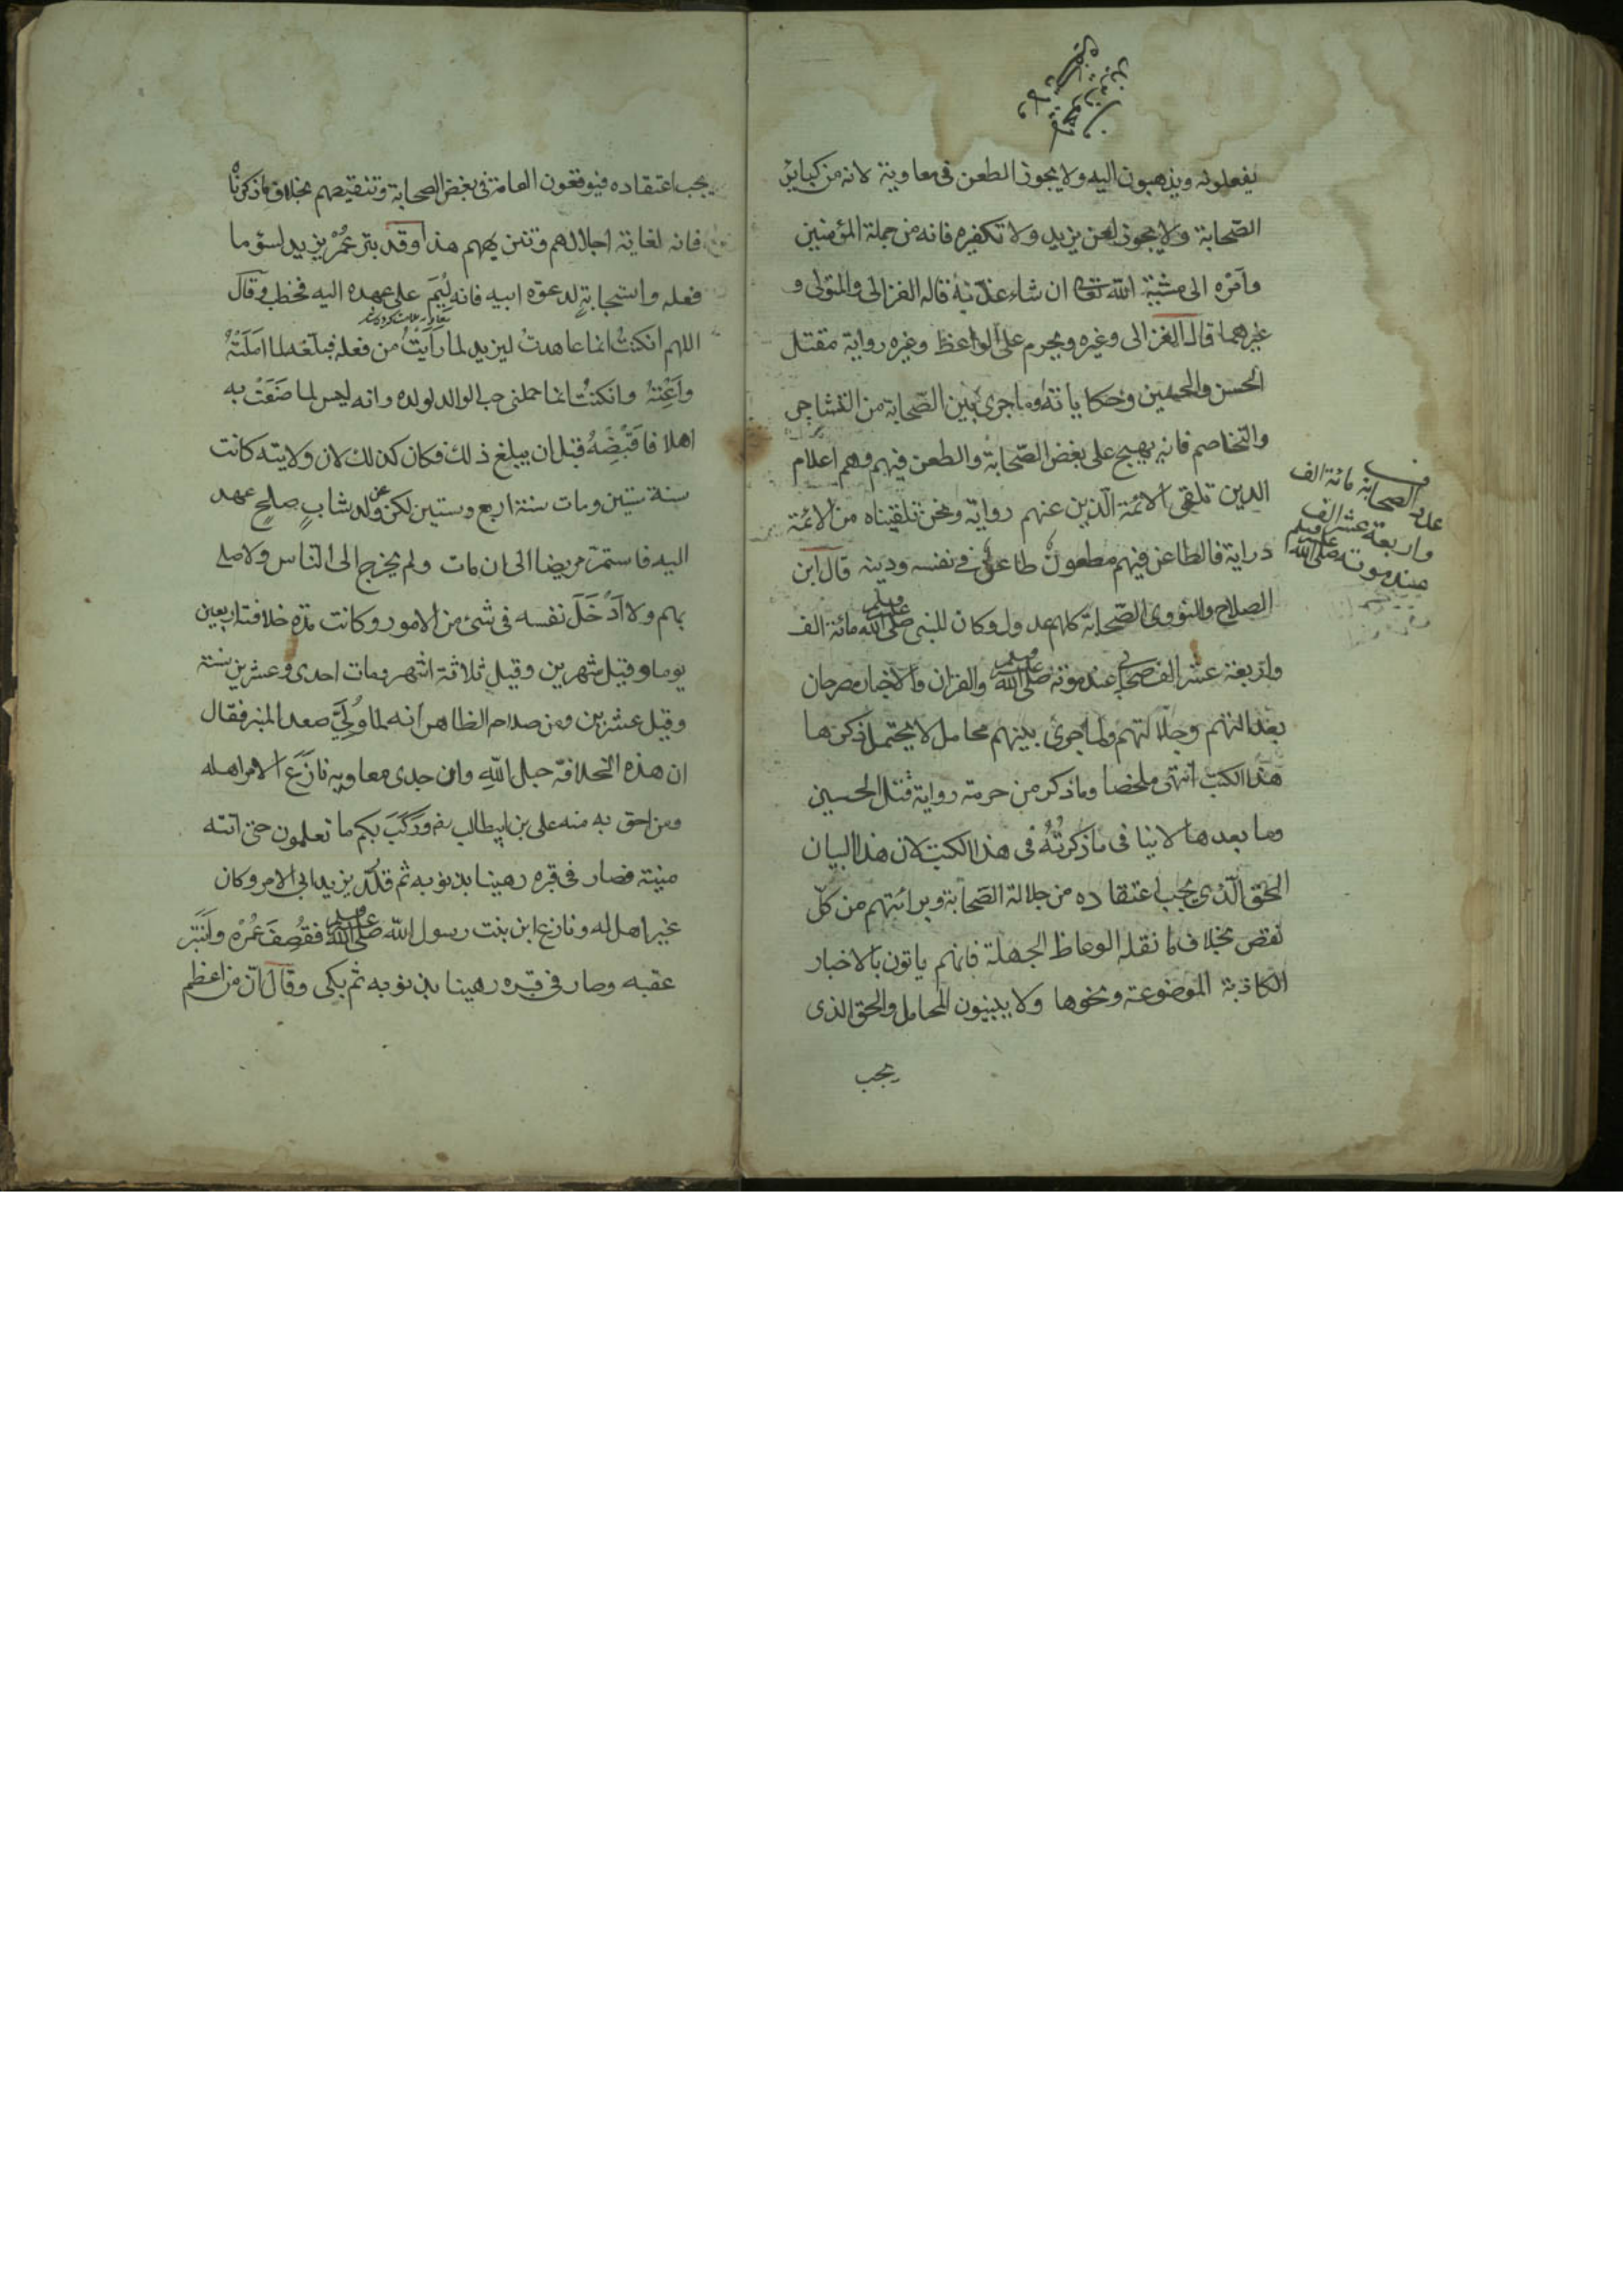 يفعلونه ويذهبون اليه ولا يجوز الطعن فى معاوية لانه من كبائر
الصّحابة ولا يجوز لعن يزيد ولا تكفيره فانه من جملة المؤمنين
وامْرُه الى مشيّة الله تعالى ان شاء عذّبه قاله الغزالى والمتولى و
غيرهما قال الغزالى وغيره ويحرم على الواعظ وغيره رواية مقتل
الحسن والحسين وحكاياته وما جرى بين الصّحابة من التشاجر
والتخاصم فانه يهيج على بغض الصّحابة والطعن فيهم وهم اعلام
الدين تلقى الائمّة الّذين عنهم رواية ونحن تلقيناه من الائمّة
دراية فالطاعن فيهم مطعون طاعن فى نفسه ودينه قال ابن
الصلاح والنووى الصّحابة كلهم عدول وكان للنبى صلى الله عليه وسلم مائة الف
واربعة عشر الف صحابى عند موته صلى الله عليه وسلم والقران والاخبار مصرحان
بعدالتهم وجلالتهم ولما جرى بينهم محامل لا يحتمل ذكرها
هذا الكتب انتهى ملخصا وما ذكر من حرمة رواية قتل الحسين
وما بعدها لا ينافى ما ذكرتُهُ فى هذا الكتب لان هذا البيان
الحق الّذى يجب اعتقاده من جلالة الصّحابة وبرائتهم من كلّ
نقص بخلاف ما نقله الوعاظ الجهلة فانهم ياتون بالاخبار
الكاذبة الموضوعة ونحوها ولا يبينون المحامل والحق الذى
يجب
عدد الصحابة مائة الف
واربعة عشر الف
عند موته صلى الله عليه وسلم
يجب اعتقاده فيوقعون العامة فى بغض الصحابة وتنقيصهم بخلاف ما ذكرناه
فانه لغاية اجلالهم وتنزيههم هذا وقد بتر عُمُرُ يزيد لسوء ما
فعله واستجابةٍ لدعوة ابيه فانه لِيْمَ على عهده اليه فخطب وقال
اللهم ان كنتُ انما عاهدتُ ليزيد لما رَاَيْتُ من فعله فبلّغه لما امّلتُهُ
واَعِنْهُ وان كنتُ انما حملنى حب الوالد لولده وانه ليس لما صَنَعْتُ به
اهلا فاقْبِضْهُ قبل ان يبلغ ذلك فكان كذلك لان ولايته كانت
سنة ستين ومات سنة اربع وستين لكن عن ولد شابٍ صلحٍ عهد
اليه فاستمرّ مريضا الى ان مات ولم يخرج الى الناس ولا صلى
بهم ولا اَدْخَلَ نفسه فى شئ من الامور وكانت مدة خلافته اربعين
يوما وقيل شهرين وقيل ثلاثة اشهر ومات احدى وعشرين سنة
وقيل عشرين ومن صلاحه الظاهر انه لما وُلِّىَ صعد المنبر فقال
ان هذه الخلافة حبل اللهِ وان جدى معاويه نازَعَ الامر اهله
ومن احق به منه على بن ابيطالب رضه ورَكِبَ بكم ما تعلمون حتى اتته
منيته فصار فى قبره رهينا بذنوبه ثم قلّد يزيد ابى الامر وكان
غير اهل له ونازع ابن بنت رسول اللّه صلى الله عليه وسلم فقُصِفَ عُمُرُه وانْبَتَر
عقبه وصار فى قبره رهينا بذنوبه ثم بكى وقال انّ من اعظم